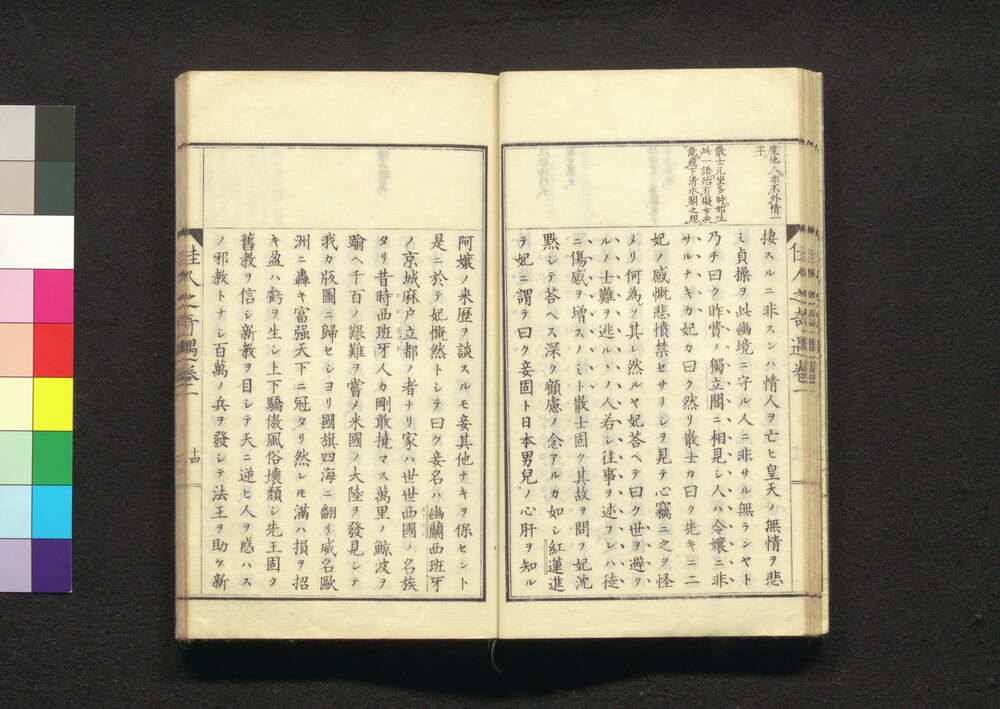 度他人亦不外情一
字
散士兀坐多時始吐
此一語殆有癡女決
意飛下清水閣之想
棲スルニ非スンハ情人ヲ亡ヒ皇天ノ無情ヲ悲
ミ貞操ヲ此幽境ニ守ル人ニ非サル無ランヤト
乃チ曰ク昨嘗ノ獨立閣ニ相見シ人ハ令孃ニ非
サルナキカ妃曰ク然リ散士カ曰ク先キニ二
妃ノ感慨悲憤禁セサリシヲ見テ心竊ニ之ヲ怪
メリ何為ソ其レ然ルヤ妃荅ヘテ曰ク世ヲ避ク
ルノ士難ヲ逃ルヽノ人若シ往事ヲ述フレハ徒
ニ傷感ヲ増スノミト散士固ク其故ヲ問フ妃沈
黙シテ荅ヘス深ク顧慮ノ念アルカ如シ紅蓮進
テ妃ニ謂テ曰ク妾固ト日本男兒ノ心肝ヲ知ル
佳人之奇遇卷一
阿孃ノ来歴ヲ談スルモ妾其他ナキヲ保セント
是ニ於テ妃慨然トシテ曰ク妾名ハ幽蘭西班牙
ノ京城麻戸立都ノ者ナリ家ハ世世西國ノ名族
タリ昔時西班牙人カ剛敢撓マス萬里ノ鯨波ヲ
踰ヘ千百ノ艱難ヲ嘗メ米國ノ大陸ヲ發見シテ
我カ版圖ニ歸セシヨリ國旗四海ニ翻リ威名歐
洲ニ轟キ富强天下ニ冠タリ然レモ滿ハ損ヲ招
キ盈ハ虧ヲ生シ上下驕傲風俗壊頽シ先王固ク
舊教ヲ信シ新教ヲ目シテ天ニ逆ヒ人ヲ惑ハス
ノ邪教トナシ百萬ノ兵ヲ發シテ法王ヲ助ケ新
佳人之奇遇卷一
十四